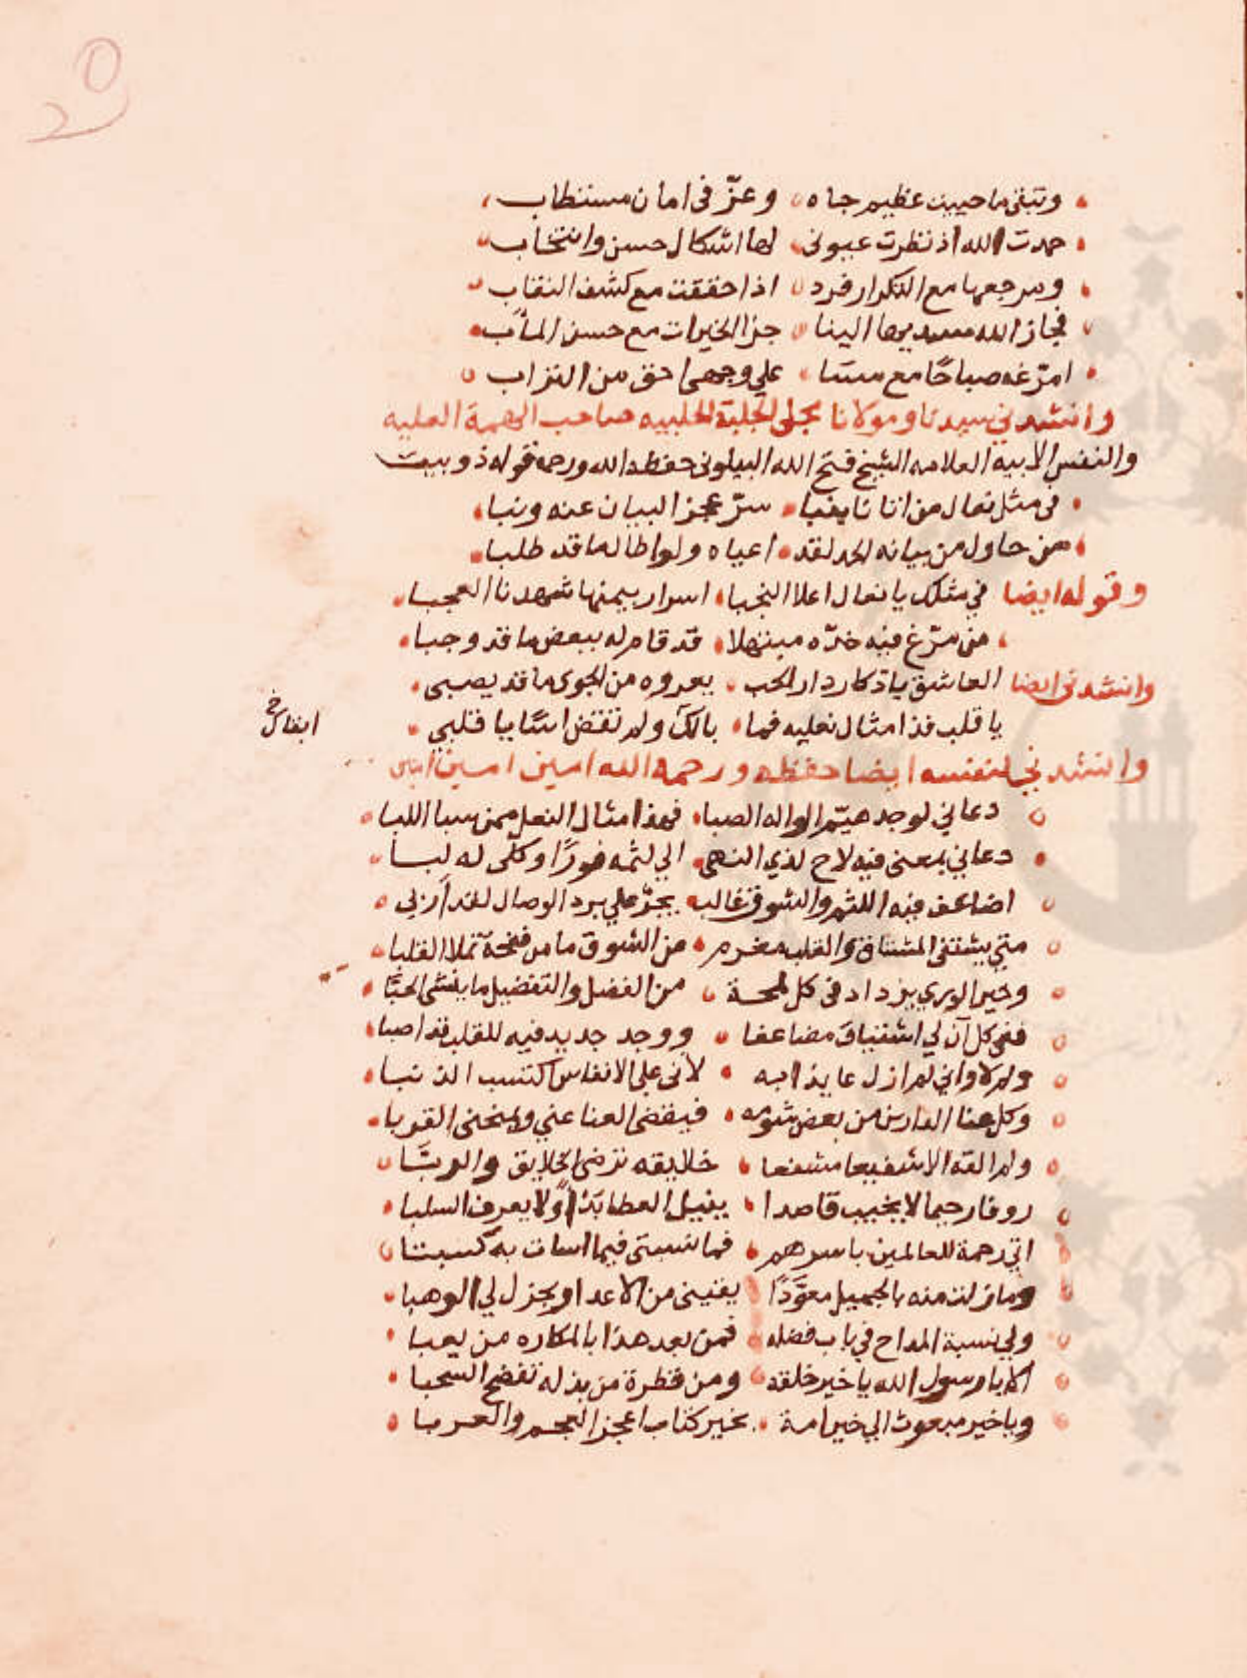 وتبقى ما حييت عظيم جاه وعزّ في امان مستطاب
حمدت الله اذ نظرت عيوني لها اشكال حسن وانتخاب
ومرجعها مع التكرار فرد اذا حققت مع كشف النقاب
فجاز الله مسديها الينا جزا الخيرات مع حسن المآب
امرّغه صباحًا مع مسًا علي وجهي احق من التراب
وانشدني سيدنا ومولانا مجلي الحلبة الحلبيه صاحب الهمة العليه
والنفس الابية العلامه الشيخ فتح الله البيلوني حفظه الله ورحمه قوله ذو بيت
في مثل نعال من اتانا بنبا سرّ عجز البيان عنه ونبا
من حاول من بيانه الحد لقد اعياه ولو اطال ما قد طلبا
وقوله ايضا في مثلك يا نعال اعلا النجبا اسرار بيمنها شهدنا العجبا
من مرّغ فيه خدّه مبتهلا قد قام له ببعض ما قد وجبا
وانشدني ايضا العاشق يا ذكار دار الحب يعروه من الجوى ما قد يصبي
يا قلب فذا مثال نعليه فما بالك ولم تقض اسًا يا قلبي
ابقاك خ
وانشدني لنفسه ايضا حفظه ورحمه الله امين امين امين
دعاني لوجد هيّم الواله الصبا فهذا مثال النعل ممن سبا اللبا
دعاني بمعنى فيه لاح لذي النهى الي لثمه فورًا وكلّى له لبا
اضاعف فيه اللثم والشوق غالب يجرّ علي برد الوصال لقد أربى
متي يشتفى المشتاق والقلب مغرم من الشوق ما من فتحة تملا القلبا
وخير الوري يزداد في كل لمحة من الفضل والتفضيل ما ينشى الحبّا
ففي كل آن لي اشتياق مضاعفا ووجد جديد فيه للقلب قد اصبا
ولم لا واني لم ازل عايذا به لاني علي الانفاس اكتسب الذنبا
وكل عنا الدارين من بعض شومه فيقضى العنا عني ويمنحنى القربا
ولم القه الا شفيعا مشفعا خلايقه ترضى الخلايق والربّا
روفا رحيما لا يخيب قاصدا ينيل العطا بدًأ ولا يعرف السلبا
اتي رحمة للعالمين باسرهم فما نسبتى فيما اسات به كسبا
وما زلت منه بالجميل معوّدًا يقيني من الاعدا ويجزل لي الوهبا
ولي نسبة المداح في باب فضله فمن بعد هذا بالمكاره من يعبا
الا يا رسول الله يا خير خلقه ومن قطرة من بذله تفضح السحبا
ويا خير مبعوث الي خير امة بخير كتاب اعجز العجم والعربا